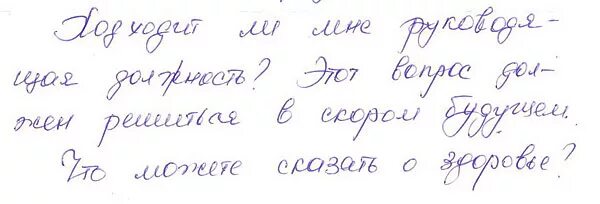 Подходит ли мне руководя-
щая должность? Этот вопрос дол-
жен решиться в скором будущем.
Что можете сказать о здоровье?